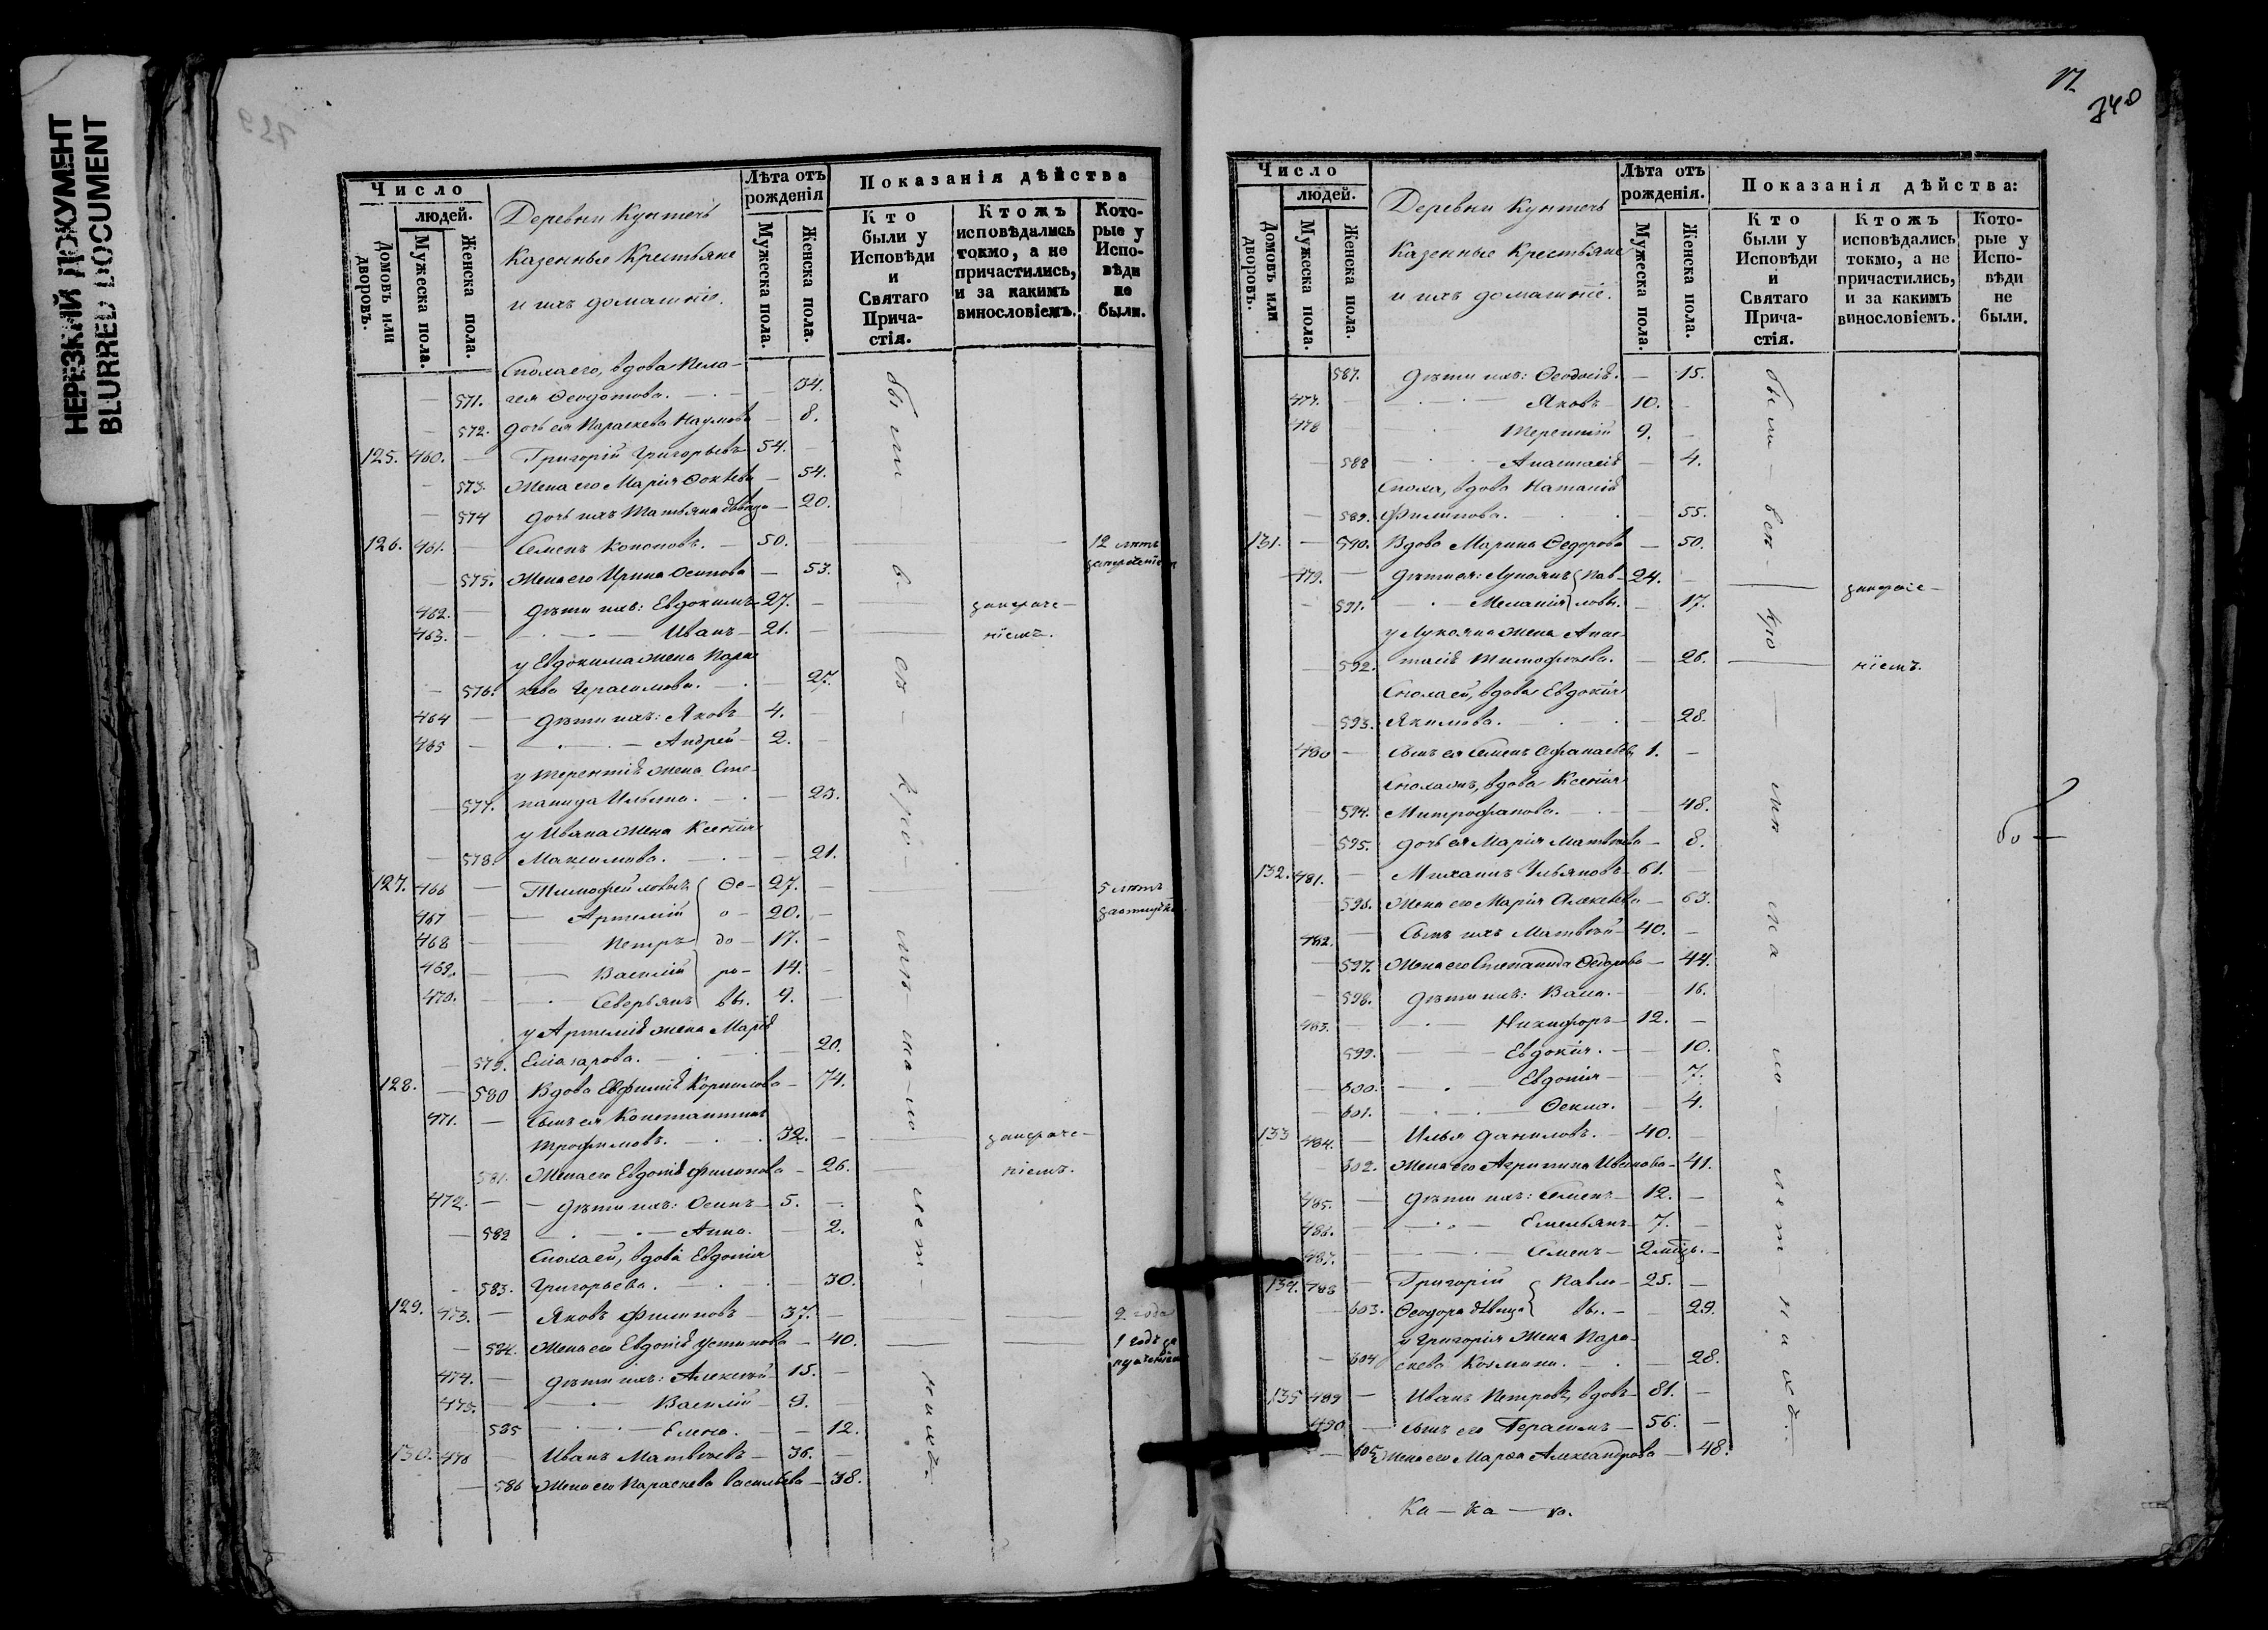 НЕРЕЗКИЙ ДОКУМЕНТ
BLURRED DOCUMENT
Число
людей.
Домовъ или дворовъ.
Мужеска пола.
Женска пола.
Деревни Кунтечь
Казенные Крестьяне
и ихъ домашніе.
Лѣта отъ рожденія
Мужеска пола.
Женска пола.
Показанія дѣйства
Кто были у Исповѣди и Святаго Причастія.
Ктожъ исповѣдались токмо, а не причастились, и за какимъ винословіемъ.
Которые у Исповѣди не были.
Снохаего, вдова Пела-
571. гея Ѳеодотова. — 34.
572. дочь ея Параскева Наумова — 8.
125. 460. — Григорій Григорьевъ 54.
573. Жена его Марія — 54.
574 дочь ихъ Татьяна дѣвица — 20.
126. 461. — Семенъ Кононовъ. — 50. — 12 лѣтъ
575. Жена его Ирина Осипова — 53.
462. — дѣти ихъ: Евдокимъ 27. —
463. — Иванъ — 21. —
у Евдокима жена Парас-
576. кева Герасимова. — 27.
464 — дѣти ихъ: Яковъ 4. —
465 — Андрей — 2. —
у Терентія жена Сте-
577. панида Ильина. — 23.
у Ивана жена Ксенія
578. Максимова. — 21.
127. 466 — Тимофей Ѳе- 27. — 5 лѣтъ
467 — Артемій о- 20. —
468 — Петръ до- 17. —
469. — Василій ро- 14. —
470. — Северьянъ вы. 9. —
у Артемія жена Марія
579. Елиазарова. — 20.
128. — 580 Вдова Евфимія Корнилова — 74.
471. — Сынъ ея Константинъ
Трофимовъ. — 32. —
581. Жена его Евдокія Филипова — 26. —
472. — дѣти ихъ: Осипъ 5. —
582 — Анна. — 2.
Снохаей, вдова Евдокія
583. Григорьева. — 30.
129. 473. — Яковъ Филиповъ — 37. — 2 года
584. Жена его Евдокія Устинова — 40. — 1 годъ
474. — дѣти ихъ: Алексѣй 15. —
475. — Василій 9. —
585 — Елена. — 12.
130. 476 — Иванъ Матвѣевъ — 36. —
586 Жена его Параскева Васильева — 38.
были
740
Число
людей.
Домовъ или дворовъ.
Мужеска пола.
Женска пола.
Деревни Кунтечь
Казенные Крестьяне
и ихъ домашніе.
Лѣта отъ рожденія.
Мужеска пола.
Женска пола.
Показанія дѣйства:
Кто были у Исповѣди и Святаго Причастія.
Ктожъ исповѣдались токмо, а не причастились, и за какимъ винословіемъ.
Которые у Исповѣди не были.
587. дѣти ихъ: Ѳеодосія. — 15.
477. — Яковъ 10. —
478 Терентій 9. —
588 — Анастасія — 4.
Сноха, вдова Наталія
589. Филипова. — 55.
131. — 590. Вдова Марина Ѳедорова — 50.
479. — дѣти ея: Лукоянъ Пав- 24. —
591. — Меланія ловы. — 17.
у Лукояна жена Анас-
592. тасія Тимофеева. — 26.
Снохаей, вдова Евдокія
593. Якимова. — 28.
480 — Сынъ ея Семенъ 1. —
Снохаихъ, вдова Ксенія
594. Митрофанова. — 48.
595. дочь ея Марія Матвѣева — 8.
132. 481. — Михаилъ Ульяновъ 61. —
596. Жена его Марія Алексѣева — 63.
482. — Сынъ ихъ Матвѣй 40. —
597. Жена его Степанида Ѳедорова — 44.
598. дѣти ихъ: Васа. — 16.
483. — Никифоръ 12. —
599. — Евдокія. — 10.
600. — Евдокія — 7.
601. — Ѳекла. — 4.
133 484. — Илья Даниловъ. — 40. —
602. Жена его Агрипина Иванова — 41.
485. — дѣти ихъ: Семенъ 12. —
486. — Емельянъ 7. —
487. — Семенъ — 2 мѣсъ. —
134. 488 — Григорій Павло- 25. —
603. Ѳеодора дѣвица вы. — 29.
у Григорія жена Пара-
604 скева Козмина. — 28.
135 489 — Иванъ Петровъ, вдовъ 81. —
490. — сынъ его Герасимъ — 56. —
605. Жена его Марѳа Александрова — 48.
были
Ка — ка — ѳ.